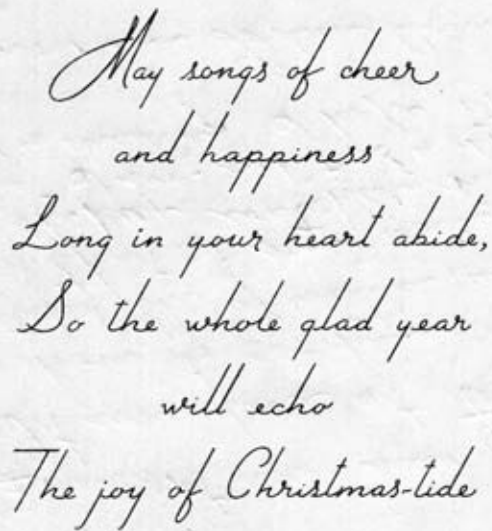 May songs of cheer
and happiness
Long in your heart abide,
So the whole glad year
will echo
The joy of Christmas-tide